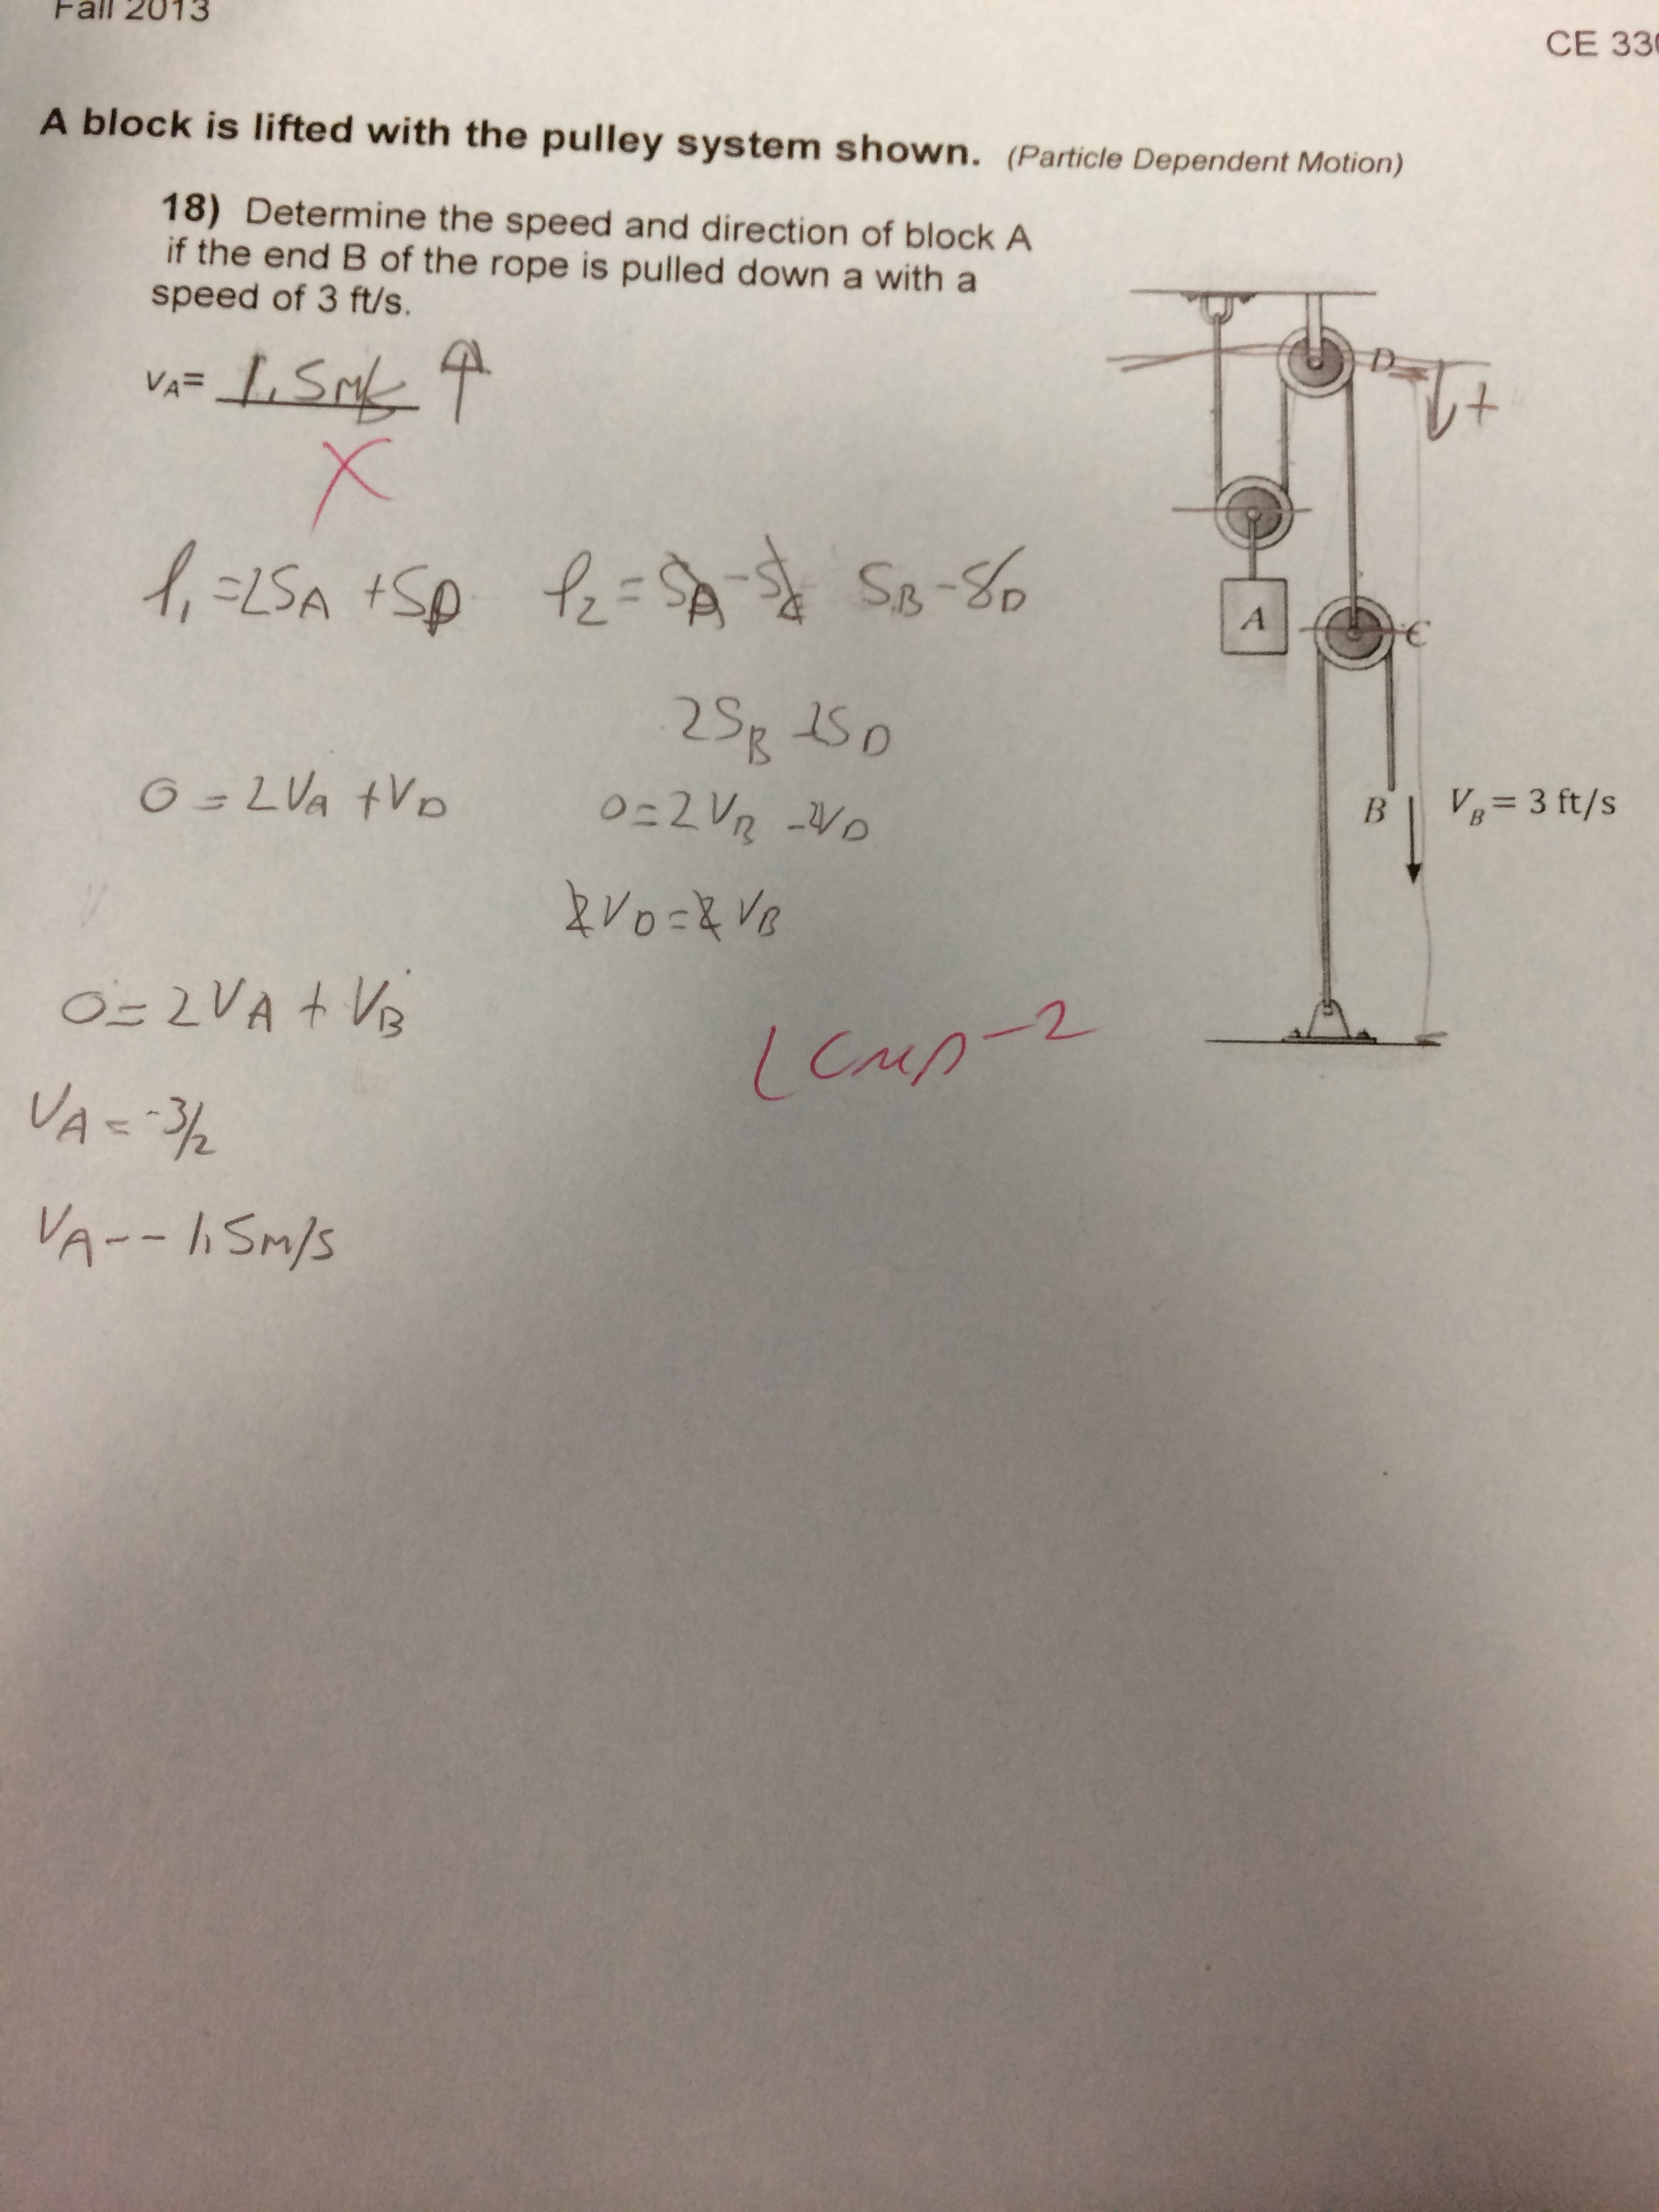 Fall 2013
CE 330
A block is lifted with the pulley system shown. (Particle Dependent Motion)
18) Determine the speed and direction of block A
if the end B of the rope is pulled down a with a
speed of 3 ft/s.
vA= 1.5 m/s ↑
X
D
↓ +
l₁ = 2SA + SD
l₂ = SA - SC SB - SD
A
C
2SB - 2SD
0 = 2VA + VD
0 = 2VB - 2VD
B
VB = 3 ft/s
2VD = 2VB
0 = 2VA + VB
-2
VA = -3/2
VA -- 1.5 m/s